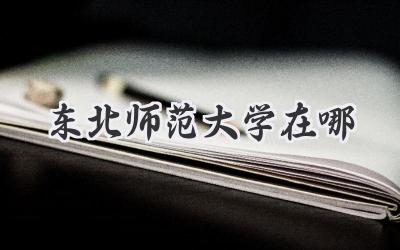 东北师范大学在哪